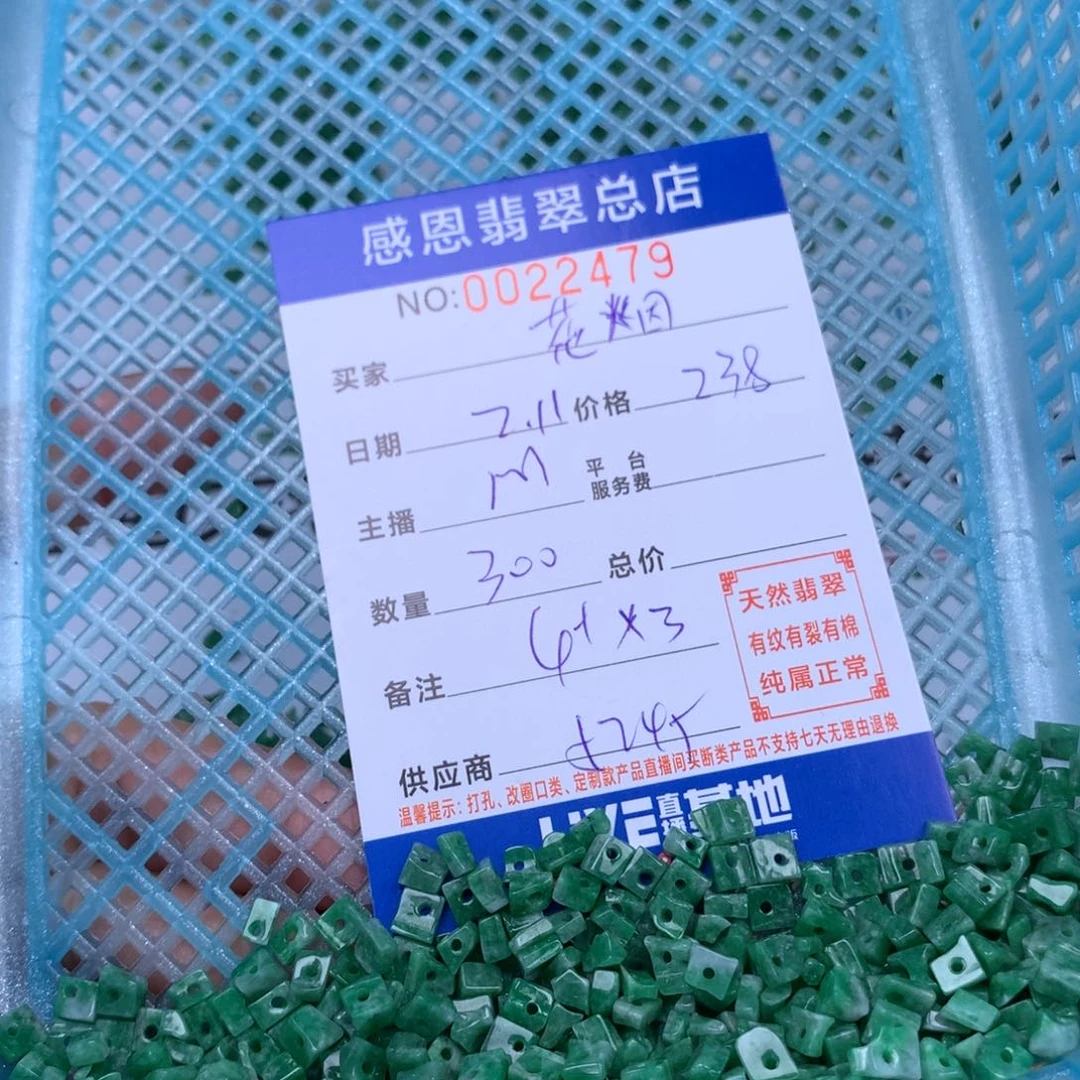 感恩翡翠总店
NO:0022479
买家 花 因
日期 2.11 价格 238
主播 M 平台服务费
数量 300 总价
备注 *3
供应商
天然翡翠
有纹有裂有棉
纯属正常
温馨提示：打孔、改圈口类、定制款产品直播间买断类产品不支持七天无理由退换
直播基地